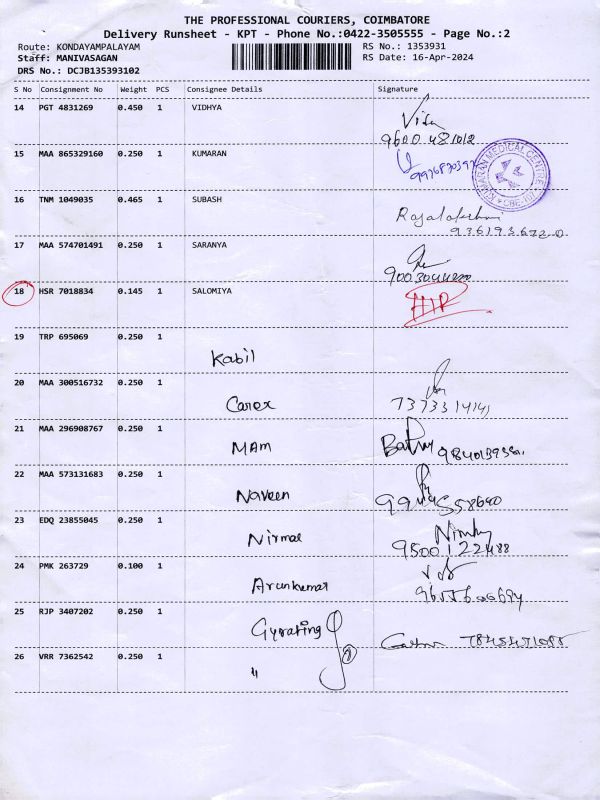 THE PROFESSIONAL COURIERS, COIMBATORE
Delivery Runsheet - KPT - Phone No.:0422-3505555 - Page No.:2
Route: KONDAYAMPALAYAM
RS No.: 1353931
Staff: MANIVASAGAN
RS Date: 16-Apr-2024
DRS No.: DCJB135393102
S No Consignment No Weight PCS Consignee Details Signature
14 PGT 4831269 0.450 1 VIDHYA
15 MAA 865329160 0.250 1 KUMARAN
KUMARAN MEDICAL CENTRE
16 TNM 1049035 0.465 1 SUBASH Rajalakshmi
17 MAA 574701491 0.250 1 SARANYA
18 HSR 7018834 0.145 1 SALOMIYA
19 TRP 695069 0.250 1 Kabil
20 MAA 300516732 0.250 1 Carex
7373314141
21 MAA 296908767 0.250 1 MAM
22 MAA 573131683 0.250 1 Naveen
23 EDQ 23855045 0.250 1 Nirmal
9500122488
24 PMK 263729 0.100 1 Arunkumar
25 RJP 3407202 0.250 1
26 VRR 7362542 0.250 1 "